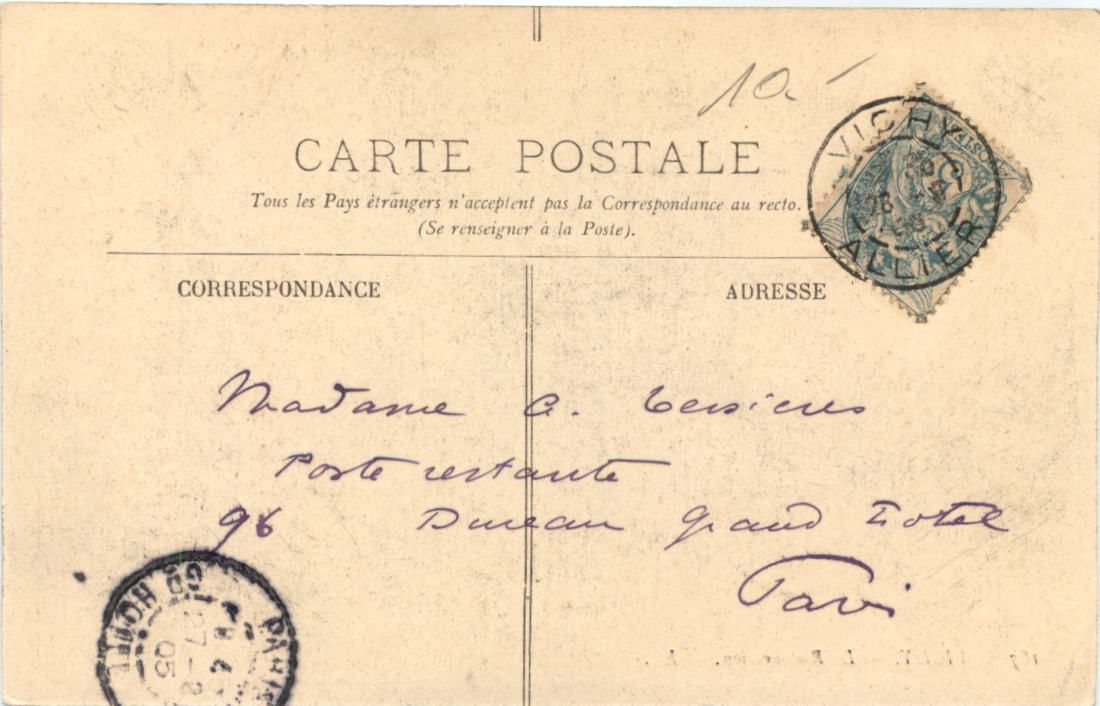 10.-
CARTE POSTALE
Tous les Pays étrangers n'acceptent pas la Correspondance au recto.
(Se renseigner à la Poste).
VICHY
ALLIER
CORRESPONDANCE
ADRESSE
Madame C.
Poste restante
96 Bureau Grand Hotel
Paris
PARIS
GD HOTEL
27-8
05